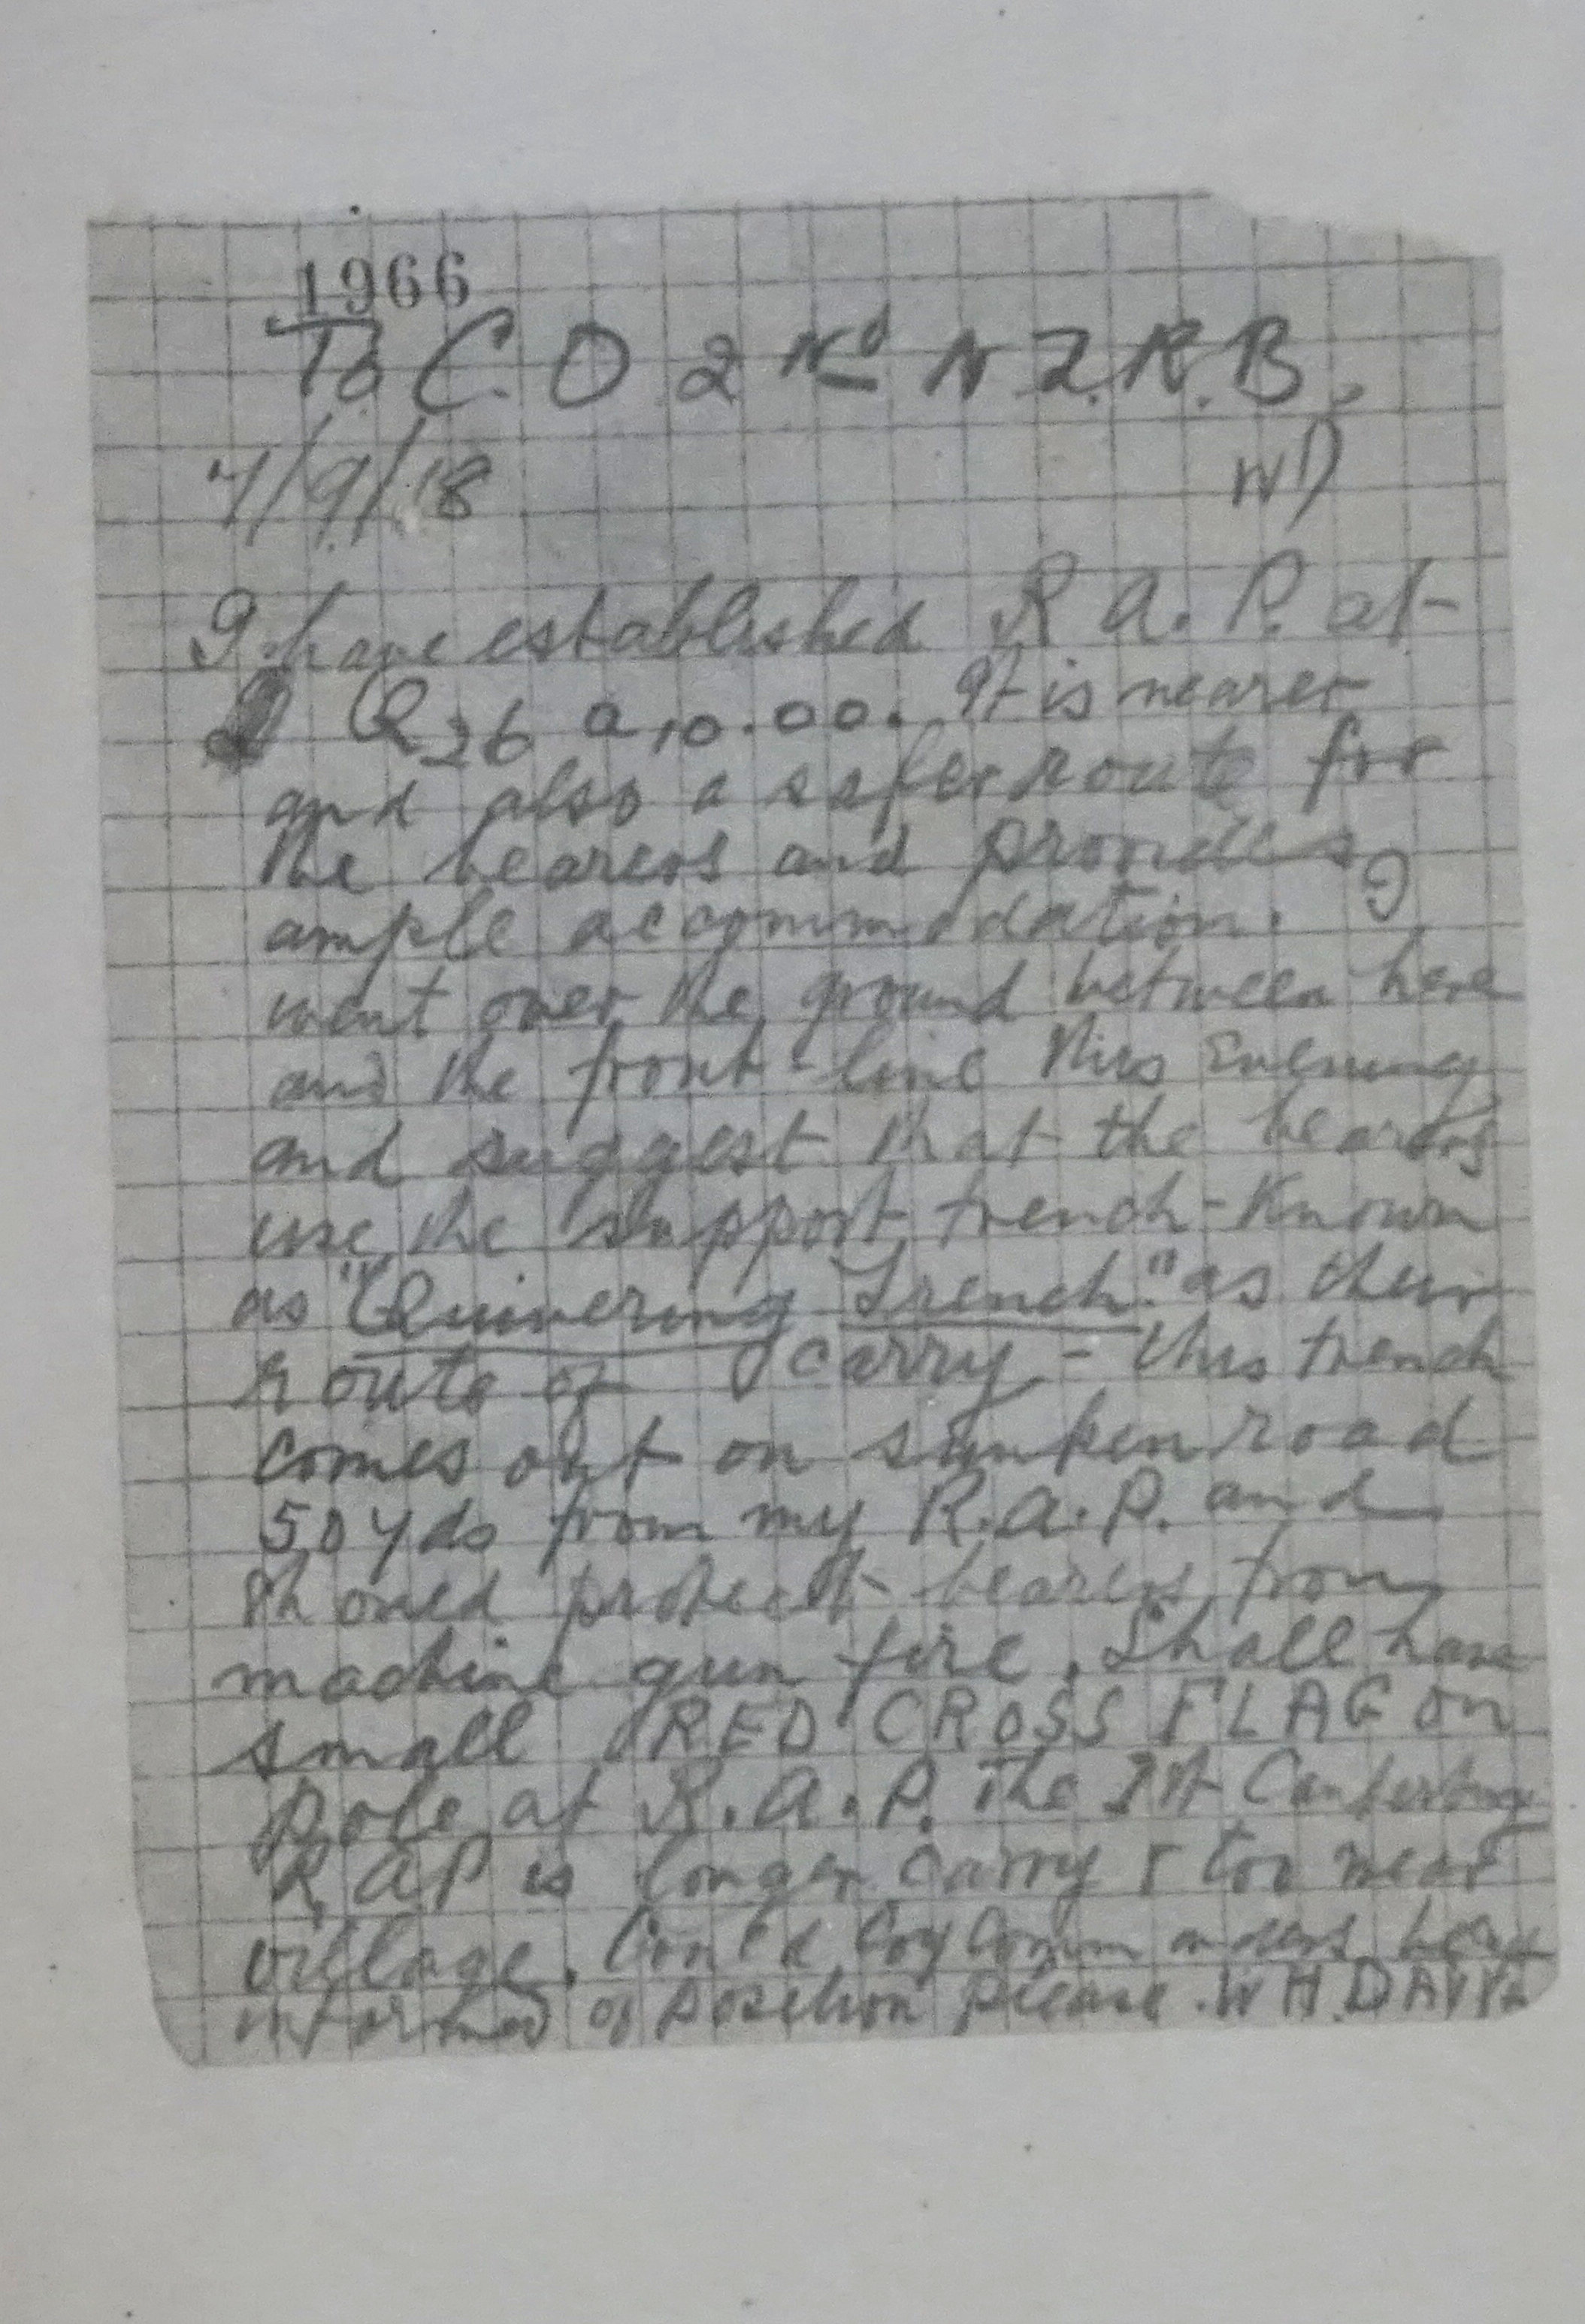 1966
To C.O 2Nd N.Z.R.B.
7/9/18 WD
I have established R.A.P. at
Q26 a 10.00. It is nearer
and also a safer route for
the bearers and provides
ample accommodation. I
went over the ground between here
and the front-line this Evening
and suggest that the bearers
use the support trench - Known
as "Quivering Trench" as their
route of carry - this trench
comes out on sunken road
50 yds from my R.A.P. and
should protect bearers from
machine gun fire. Shall have
small RED CROSS FLAG on
pole at R.A.P. The Canterbury
R.A.P is longer carry & too near
village. Could Coy Commanders be
informed of position please. W H.